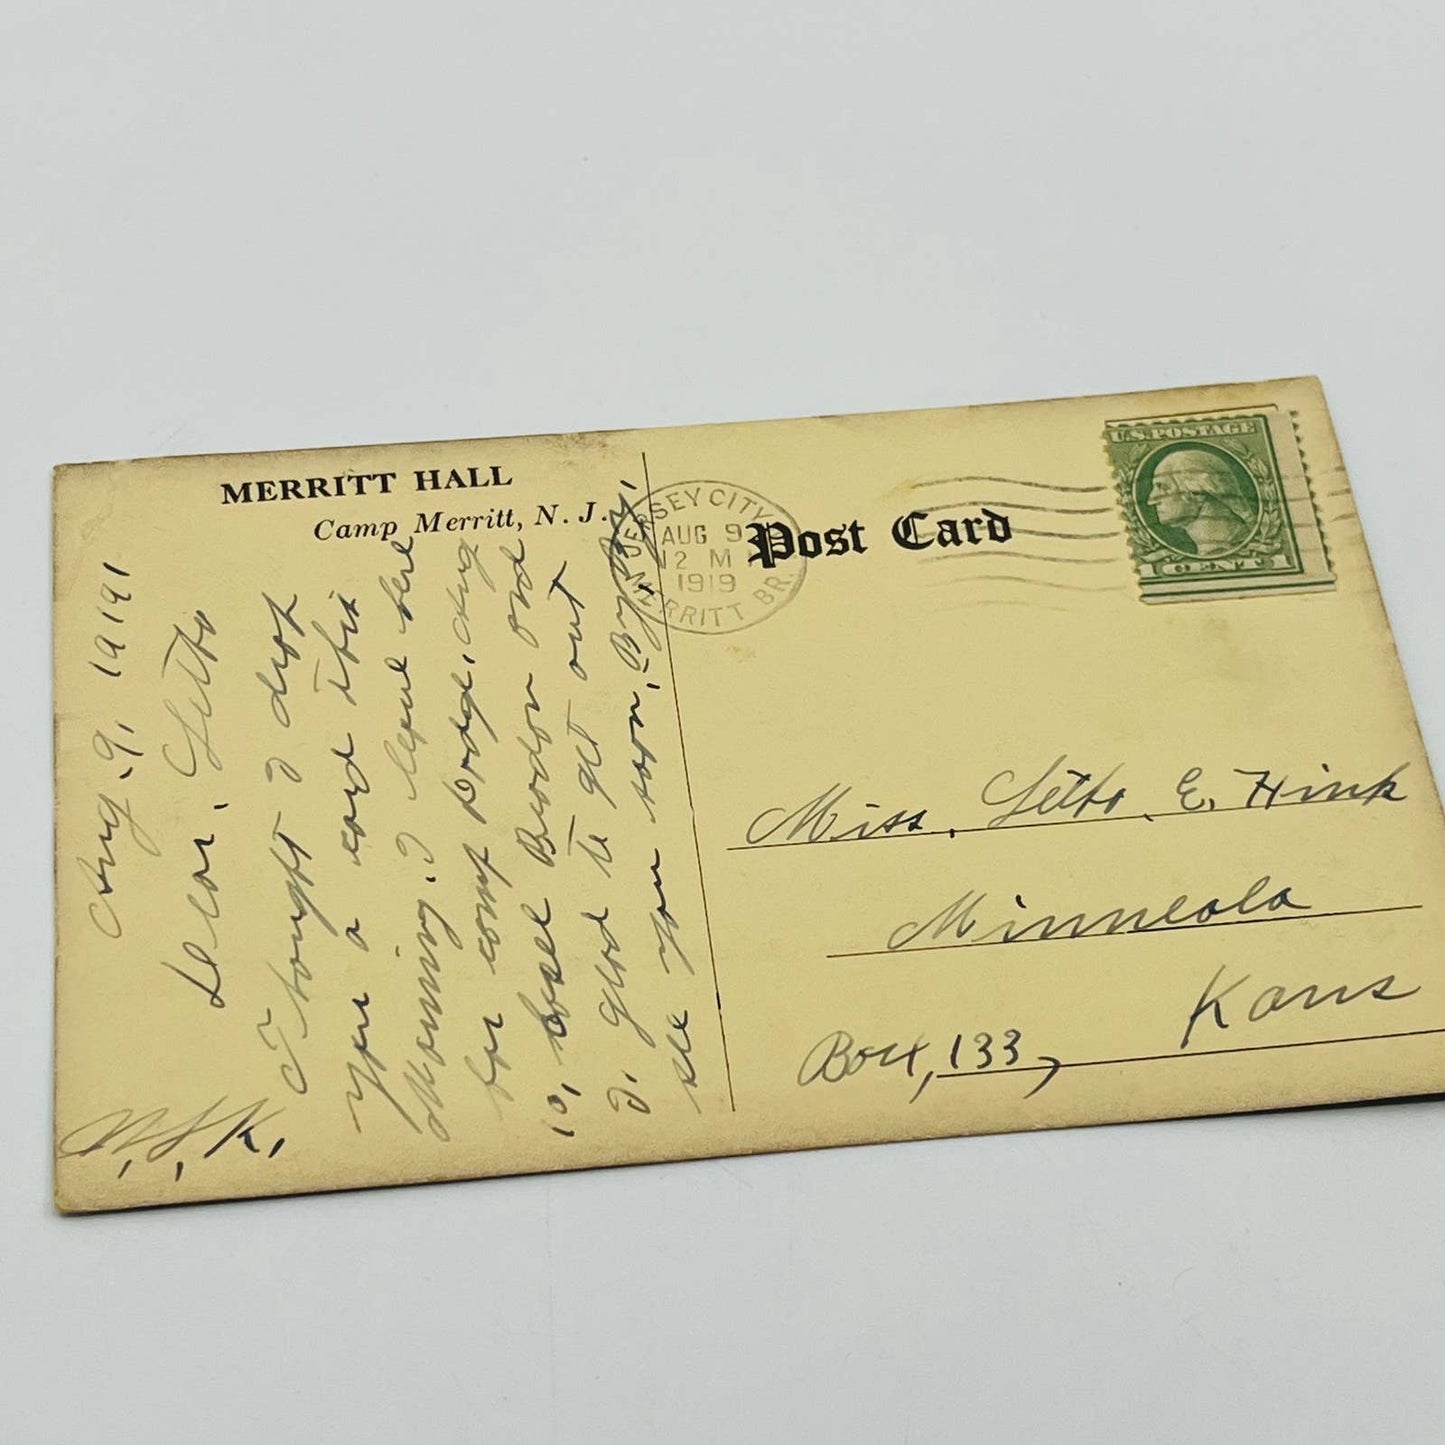 MERRITT HALL
Camp Merritt, N. J.
Aug. 9, 1919,
Dear, Letto
Thought I drop
you a card this
Morning. I leave here
for camp Dodge, Aug
10,
I, glad to get out
see you soon, By By.
N, L, K,
JERSEY CITY, N.J.
AUG 9
12 M
1919
MERRITT BR.
Post Card
U.S. POSTAGE
1 CENT 1
Miss, Letto, E, Hink
Minneola
Kans
Box, 133,